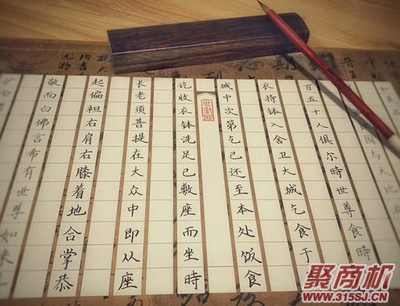 因与大比
百五十人俱尔時世尊食時
衣持钵入舍卫大城乞食于
城中次第乞已还至本处饭食
讫收衣钵洗足已敷座而坐時
長老须菩提在大众中即从座
起偏袒右肩右膝着地合掌恭
敬而白佛言希有世尊如来
聚商机
www.315SJ.CN